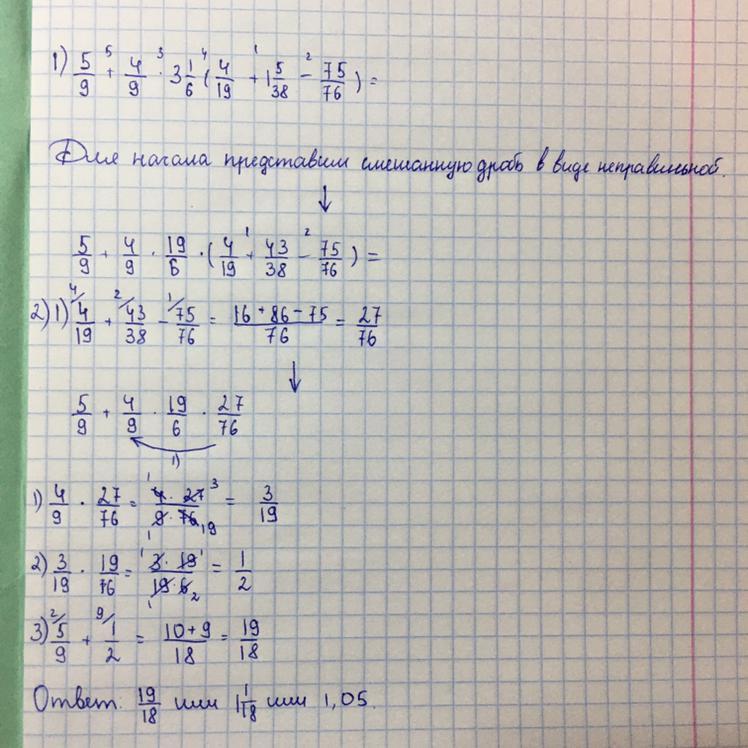 1) 5/9 + 4/9 · 3 1/6 (4/19 + 1 5/38 − 75/76) =
Для начала представим смешанную дробь в виде неправильной.
↓
5/9 + 4/9 · 19/6 · (4/19 + 43/38 − 75/76) =
2) 1) 4/19 + 43/38 − 75/76 = (16 + 86 − 75)/76 = 27/76
↓
5/9 + 4/9 · 19/6 · 27/76
1)
1) 4/9 · 27/76 = (4 · 27)/(9 · 76) = 3/19
2) 3/19 · 19/76 = (3 · 19)/(19 · 6) = 1/2
3) 5/9 + 1/2 = (10 + 9)/18 = 19/18
Ответ: 19/18 или 1 1/18 или 1,05.